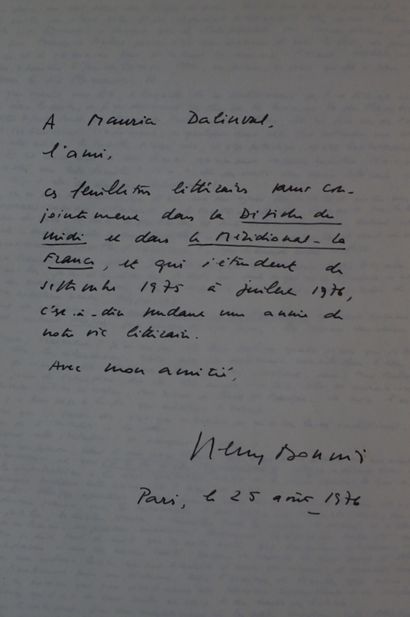 A Maurice Dalinval,
l'ami,
ces feuilletons littéraires parus con-
jointement dans la Dépêche du
midi et dans le Méridional-la
France, et qui s'étendent de
septembre 1975 à juillet 1976,
c'est-à-dire pendant une année de
notre vie littéraire.
Avec mon amitié,
Henry Bonnier
Paris, le 25 août 1976